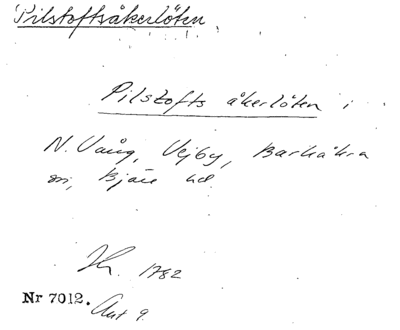 Pilstoftsåkerlöten.
Pilstofts åkerlöten i
N. Vång, Vejby, Barkåkra
sn, Bjäre hd
1782
Nr 7012.
Akt 9.